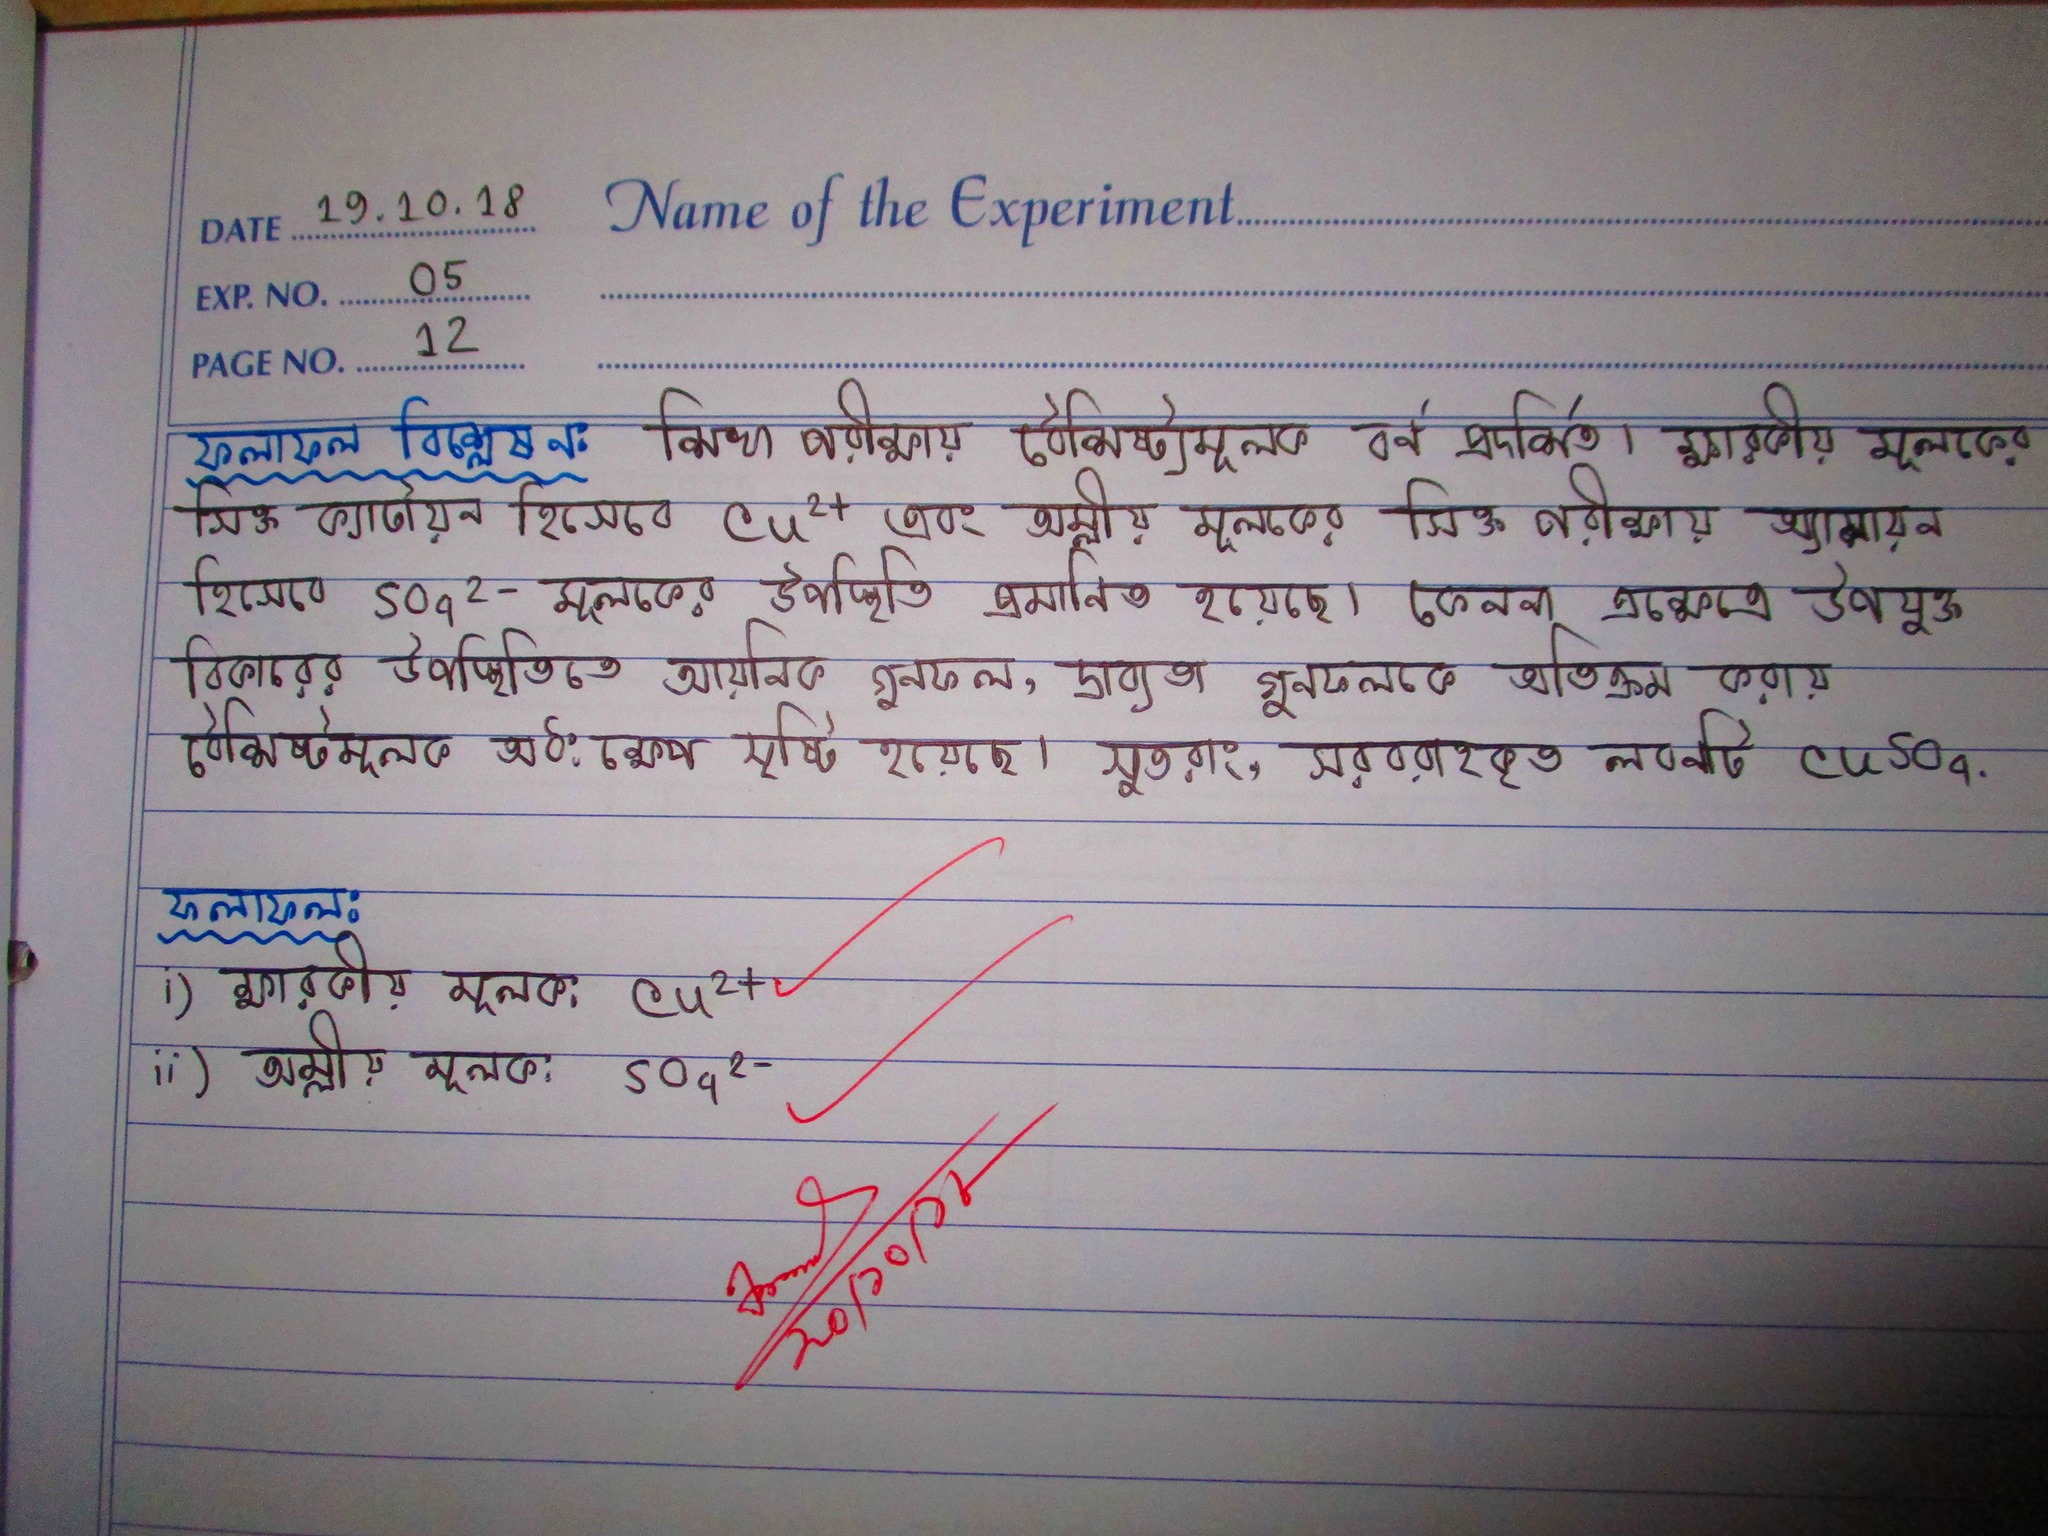 DATE 19.10.18 Name of the Experiment
EXP. NO. 05
PAGE NO. 12
ফলাফল বিশ্লেষনঃ শিখা পরীক্ষায় বৈশিষ্ট্যমূলক বর্ন প্রদর্শিত। ক্ষারকীয় মূলকের
সিক্ত ক্যাটায়ন হিসেবে Cu²⁺ এবং অম্লীয় মূলকের সিক্ত পরীক্ষায় অ্যানায়ন
হিসেবে SO₄²⁻ মূলকের উপস্থিতি প্রমানিত হয়েছে। কেননা এক্ষেত্রে উপযুক্ত
বিকারের উপস্থিতিতে আয়নিক গুনফল, দ্রাব্যতা গুনফলকে অতিক্রম করায়
বৈশিষ্টমূলক অধঃক্ষেপ সৃষ্টি হয়েছে। সুতরাং, সরবরাহকৃত লবনটি CuSO₄.
ফলাফলঃ
i) ক্ষারকীয় মূলক: Cu²⁺
ii) অম্লীয় মূলক: SO₄²⁻
২০/১০/১৮